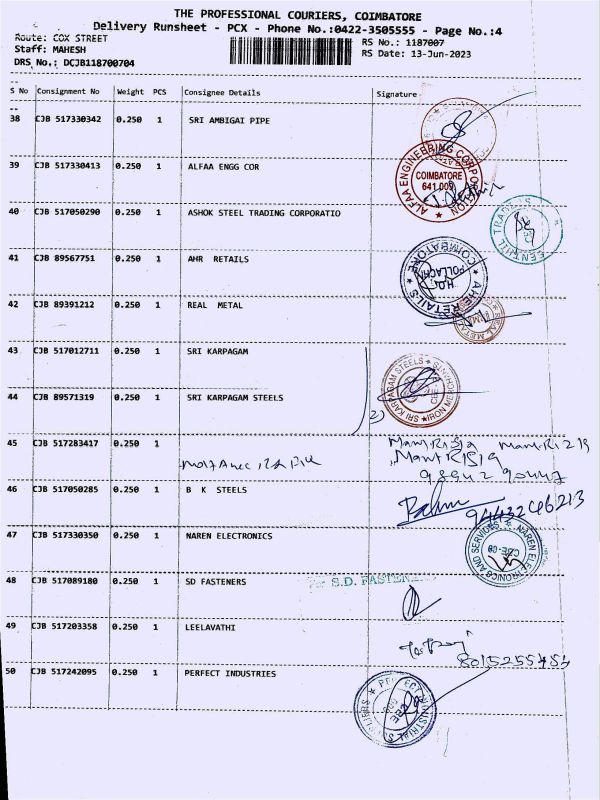 THE PROFESSIONAL COURIERS, COIMBATORE
Delivery Runsheet - PCX - Phone No.:0422-3505555 - Page No.:4
Route: COX STREET
RS No.: 1187007
Staff: MAHESH
RS Date: 13-Jun-2023
DRS No.: DCJB118700704
S No Consignment No Weight PCS Consignee Details Signature
38 CJB 517330342 0.250 1 SRI AMBIGAI PIPE
39 CJB 517330413 0.250 1 ALFAA ENGG COR
ALFAA ENGINEERING CORPORATION
COIMBATORE
641 009
40 CJB 517050290 0.250 1 ASHOK STEEL TRADING CORPORATIO
41 CJB 89567751 0.250 1 AHR RETAILS
COIMBATORE
H.O.
POLLACHI
42 CJB 89391212 0.250 1 REAL METAL
43 CJB 517012711 0.250 1 SRI KARPAGAM
44 CJB 89571319 0.250 1 SRI KARPAGAM STEELS
SRI KARPAGAM STEELS
45 CJB 517283417 0.250 1
46 CJB 517050285 0.250 1 B K STEELS
9443246213
47 CJB 517330350 0.250 1 NAREN ELECTRONICS
NAREN ELECTRONICS AND SERVICES
48 CJB 517089180 0.250 1 SD FASTENERS
S.D. FASTENE
49 CJB 517203358 0.250 1 LEELAVATHI
50 CJB 517242095 0.250 1 PERFECT INDUSTRIES